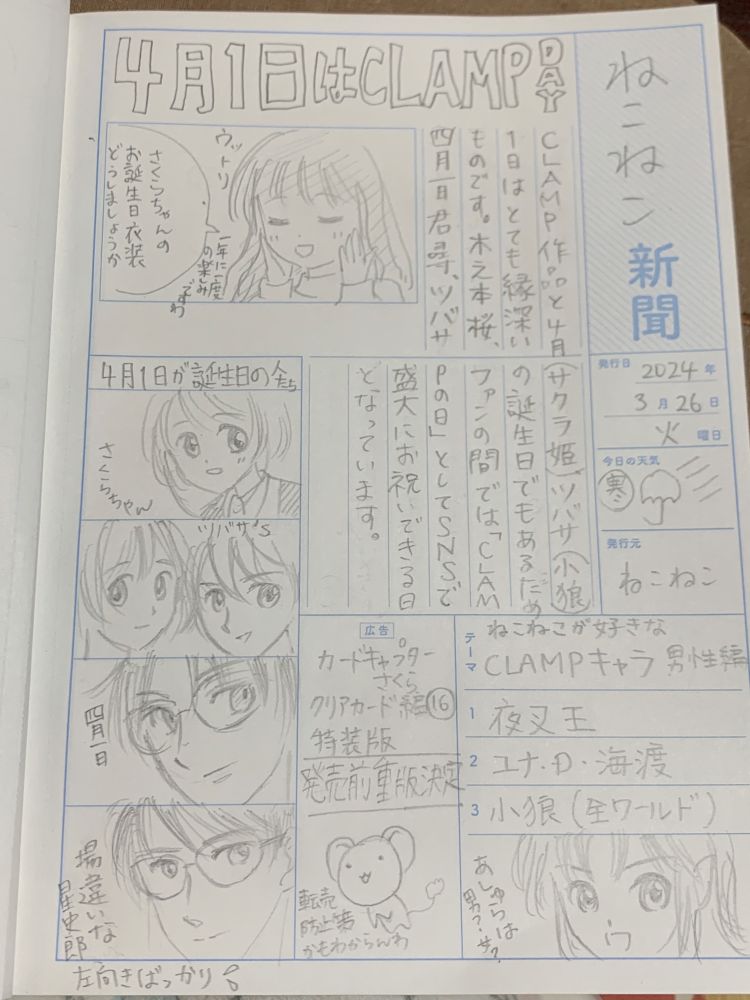 ねこねこ
新聞
発行日
2024年
3月26日
火曜日
今日の天気
寒
発行元
ねこねこ
4月1日はCLAMP DAY
CLAMP作品と4月
1日はとても縁深い
ものです。木之本桜、
四月一日君尋、ツバサ
(サクラ姫)ツバサ(小狼)
の誕生日でもあるため
ファンの間では「CLAM
Pの日」としてSNSで
盛大にお祝いできる日
となっています。
ウットリ
さくらちゃんの
お誕生日衣装
どうしましょうか
一年に一度
の楽しみ
ですわ
4月1日が誕生日の会たち
さくらちゃん
ツバサ's
四月一日
場違いな
星史郎
左向きばっかり
広告
カードキャプター
さくら
クリアカード編⑯
特装版
発売前重版決定
転売
防止策
かもわからんわ
テーマ
ねこねこが好きな
CLAMPキャラ 男性編
1 夜叉王
2 ユナ・D・海渡
3 小狼(全ワールド)
あしゅらは
男?サ?